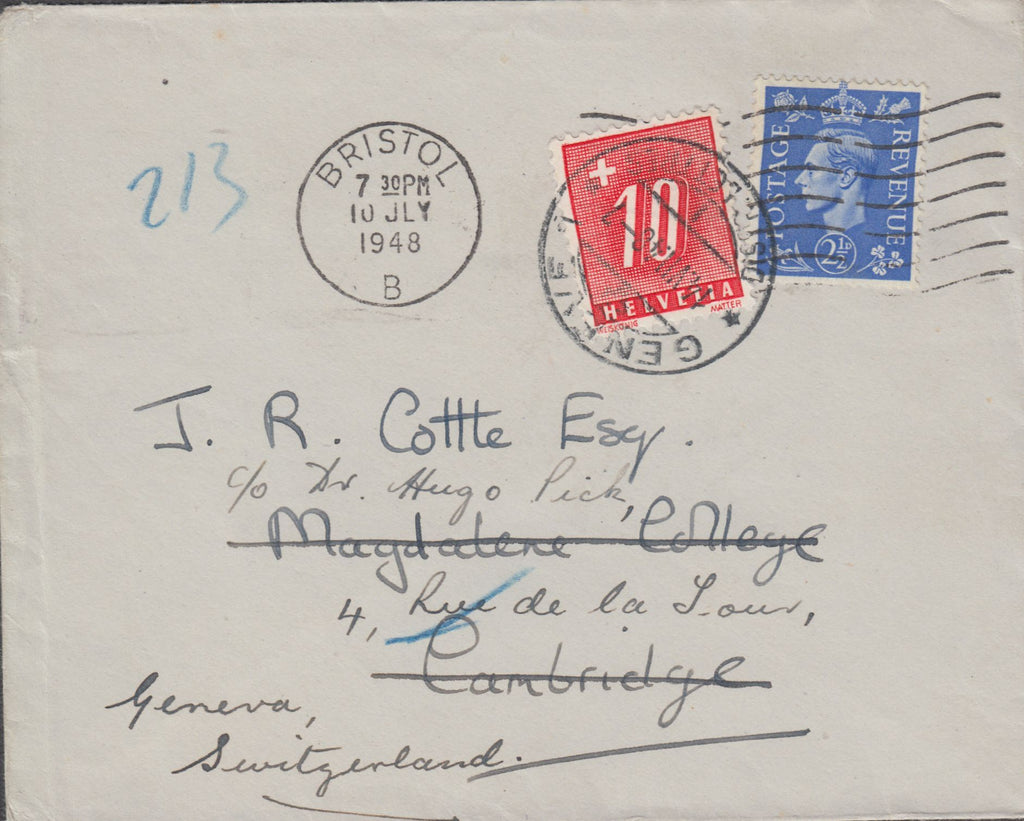 213
BRISTOL
7 30PM
10 JLY
1948
B
10
HELVETIA
MATTER
GENEVE
POSTAGE
REVENUE
2½D
J. R. Cottle Esq.
c/o Dr. Hugo Pick,
Magdalene College
4, Rue de la Tour,
Cambridge
Geneva,
Switzerland.